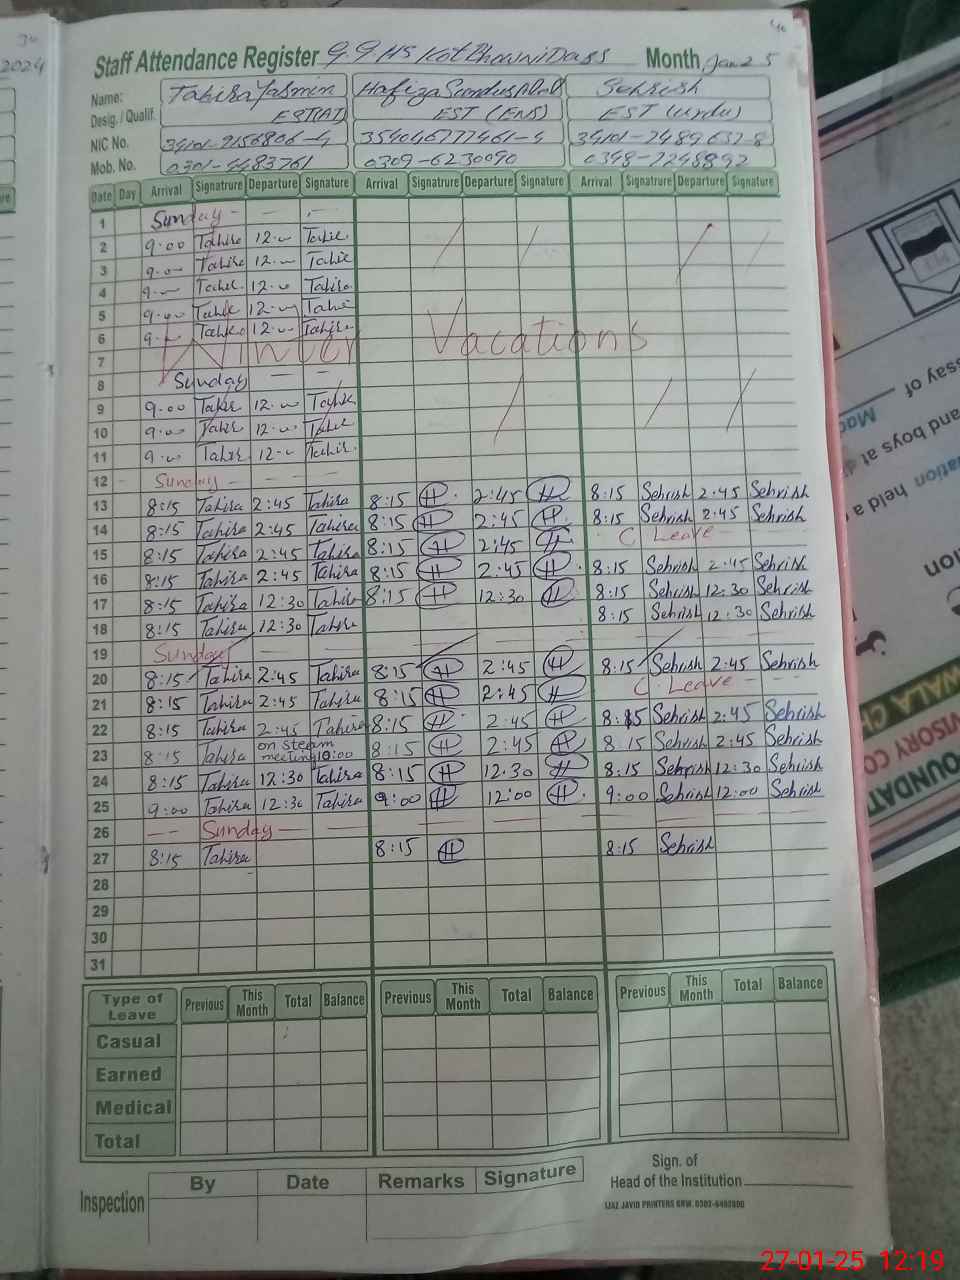 2024
Staff Attendance Register G.G.HS Kot Bhowni Dass Month Jan 25
Name: Tahira Yasmin Hafiza Sundus Sehrish
Desig. / Qualif. EST(AT) EST (Eng) EST (urdu)
NIC No. 34101-9156806-4 35404677461-4 34101-7489637-8
Mob. No. 0301-4483761 0309-6230090 0348-7248892
Date Day Arrival Signatrure Departure Signature Arrival Signatrure Departure Signature Arrival Signatrure Departure Signature
1 Sunday
2 9:00 Tahira 12:00 Tahir
3 9:00 Tahira 12:00 Tahir
4 9:00 Tahir 12:00 Tahira
5 9:00 Tahir 12:00 Tahir
6 9:00 Tahir 12:00 Tahira
Winter Vacations
7
8 Sunday
9 9:00 Tahir 12:00 Tahir
10 9:00 Tahir 12:00 Tahir
11 9:00 Tahir 12:00 Tahir
12 Sunday
13 8:15 Tahira 2:45 Tahira 8:15 H 2:45 H 8:15 Sehrish 2:45 Sehrish
14 8:15 Tahira 2:45 Tahira 8:15 H 2:45 H 8:15 Sehrish 2:45 Sehrish
15 8:15 Tahira 2:45 Tahira 8:15 H 2:45 H C Leave
16 8:15 Tahira 2:45 Tahira 8:15 H 2:45 H 8:15 Sehrish 2:45 Sehrish
17 8:15 Tahira 12:30 Tahira 8:15 H 12:30 H 8:15 Sehrish 12:30 Sehrish
18 8:15 Tahira 12:30 Tahira 8:15 Sehrish 12:30 Sehrish
19 Sunday
20 8:15 Tahira 2:45 Tahira 8:15 H 2:45 H 8:15 Sehrish 2:45 Sehrish
21 8:15 Tahira 2:45 Tahira 8:15 H 2:45 H C Leave
22 8:15 Tahira 2:45 Tahira 8:15 H 2:45 H 8:15 Sehrish 2:45 Sehrish
23 8:15 Tahira on steam meeting 10:00 8:15 H 2:45 H 8:15 Sehrish 2:45 Sehrish
24 8:15 Tahira 12:30 Tahira 8:15 H 12:30 H 8:15 Sehrish 12:30 Sehrish
25 9:00 Tahira 12:30 Tahira 9:00 H 12:00 H 9:00 Sehrish 12:00 Sehrish
26 Sunday
27 8:15 Tahira 8:15 H 8:15 Sehrish
28
29
30
31
Type of Leave Previous This Month Total Balance Previous This Month Total Balance Previous This Month Total Balance
Casual
Earned
Medical
Total
Inspection By Date Remarks Signature
Sign. of
Head of the Institution
IJAZ JAVID PRINTERS GRW. 0302-6492800
essay of
and boys at
held a
WALA CH
VISORY CO
OUNDAT
27-01-25 12:19